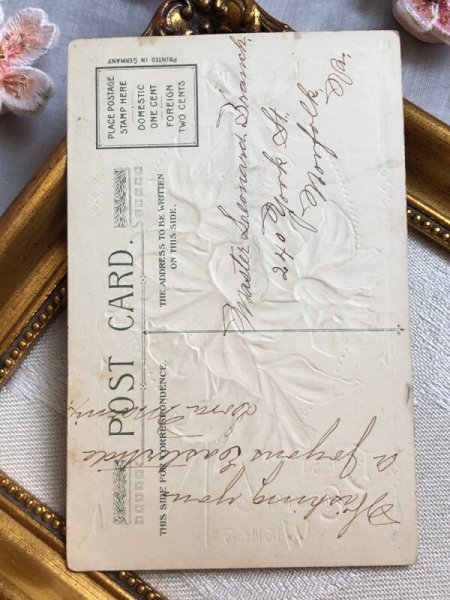 POST CARD.
THIS SIDE FOR CORRESPONDENCE.
THE ADDRESS TO BE WRITTEN
ON THIS SIDE.
PLACE POSTAGE
STAMP HERE
DOMESTIC
ONE CENT
FOREIGN
TWO CENTS
PRINTED IN GERMANY
Wishing you
a joyous Eastertide
Master Leonard Branch
240 York St
Norfolk
Va